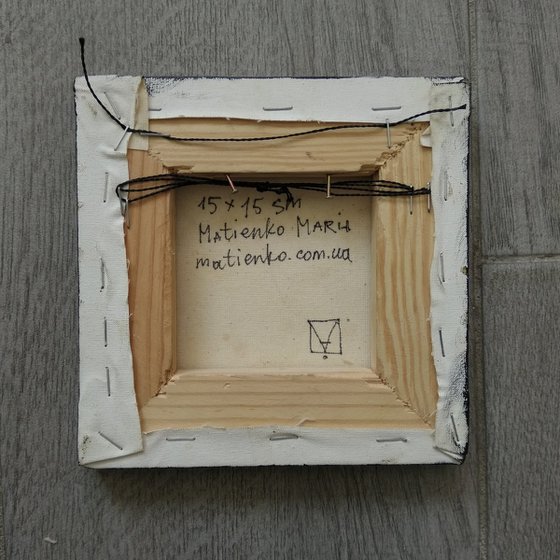 15 × 15 sm
Matienko Maria
matienko.com.ua